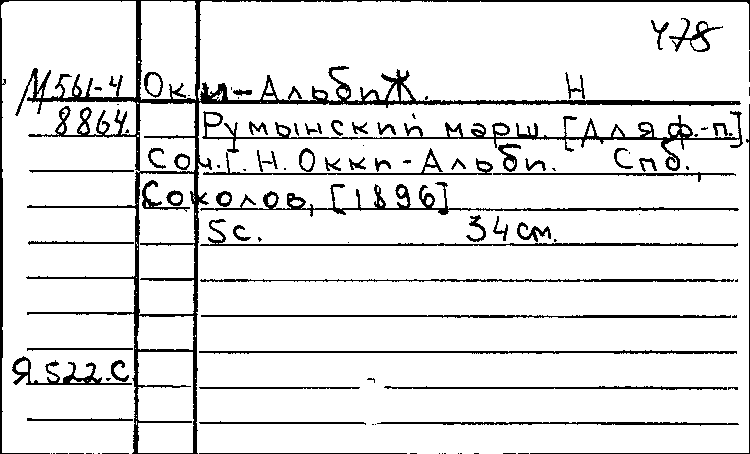 478
М561-4 Окки-Альби Ж. Н
8864.
Румынский марш. [Для ф.-п.].
Соч. Г. Н. Окки-Альби. Спб.,
Соколов, [1896]
5с. 34 см.
Я.522.С